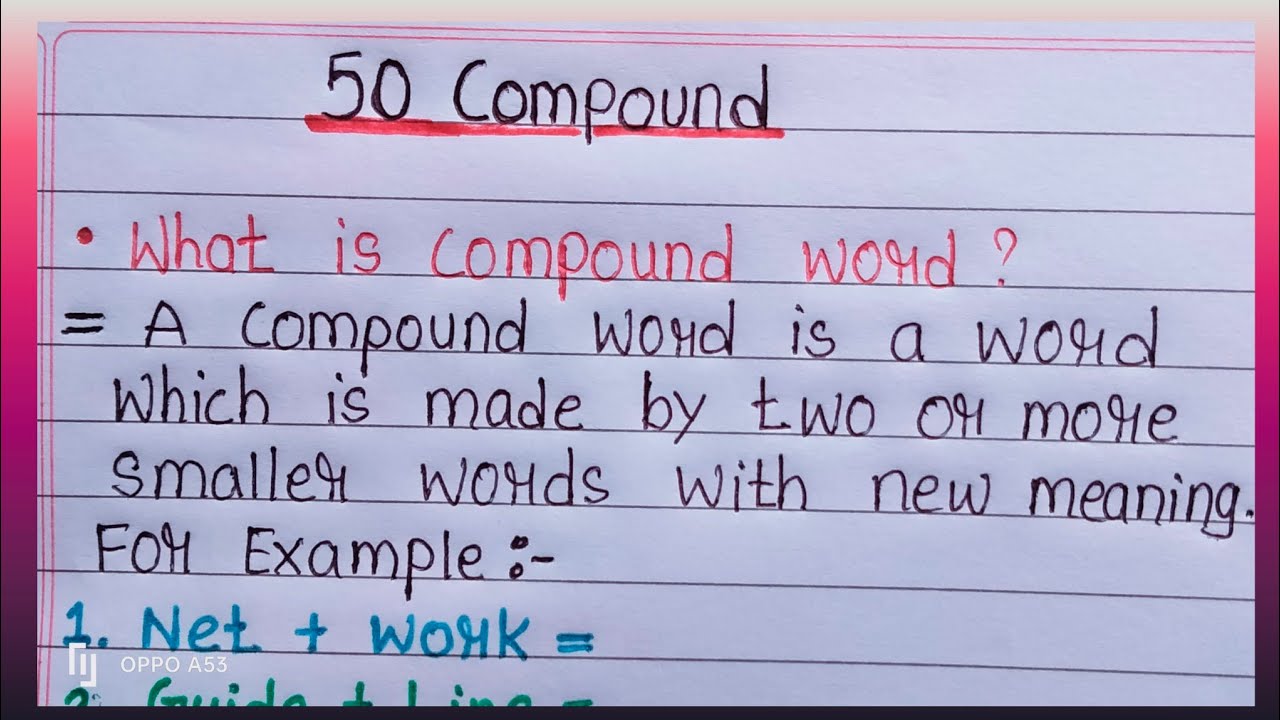 50 Compound
• What is compound word?
= A compound word is a word
which is made by two or more
smaller words with new meaning.
For Example :-
1. Net + work =
OPPO A53
2. Guide + Line =